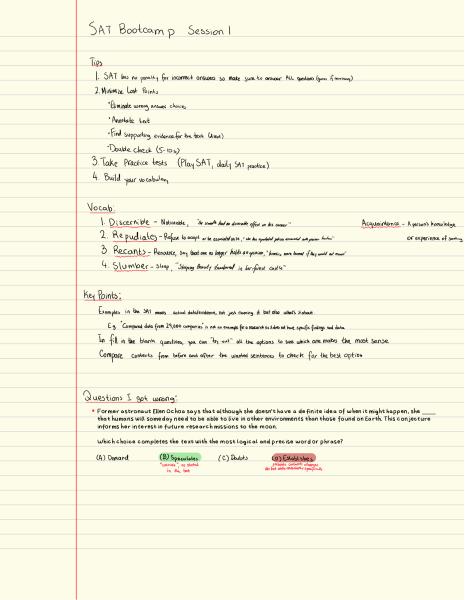 SAT Bootcamp Session 1
Tips
1. SAT has no penalty for incorrect answers so make sure to answer ALL questions (guess if necessary)
2. Minimize Lost Points
·Eliminate wrong answer choices
·Annotate text
·Find supporting evidence for the text
·Double check (5-10s)
3. Take Practice tests (PlaySAT, daily SAT practice)
4. Build your vocabulary
Vocab:
1. Discernible - Noticeable,
Acquaintance - A person's knowledge
or experience of something
2. Repudiates - Refuse to accept or be associated with,
3. Recants - Renounce, say that one no longer holds an opinion,
4. Slumber - sleep,
Key Points:
Examples in the SAT means actual data/evidence, not just claiming it but also what's
E.g. "Compared data from 29,000 companies" is not an example for a research as it does not have specific findings and data
In fill in the blank questions, you can "try out" all the options to see which one makes the most sense
Compare contexts from before and after the wanted sentences to check for the best option
Questions I got wrong:
Former astronaut Ellen Ochoa says that although she doesn't have a definite idea of when it might happen, she ____
that humans will someday need to be able to live in other environments than those found on Earth. This conjecture
informs her interest in future research missions to the moon.
Which choice completes the text with the most logical and precise word or phrase?
(A) Demand (B) Speculates (C) Doubts (D) Establishes
in the text